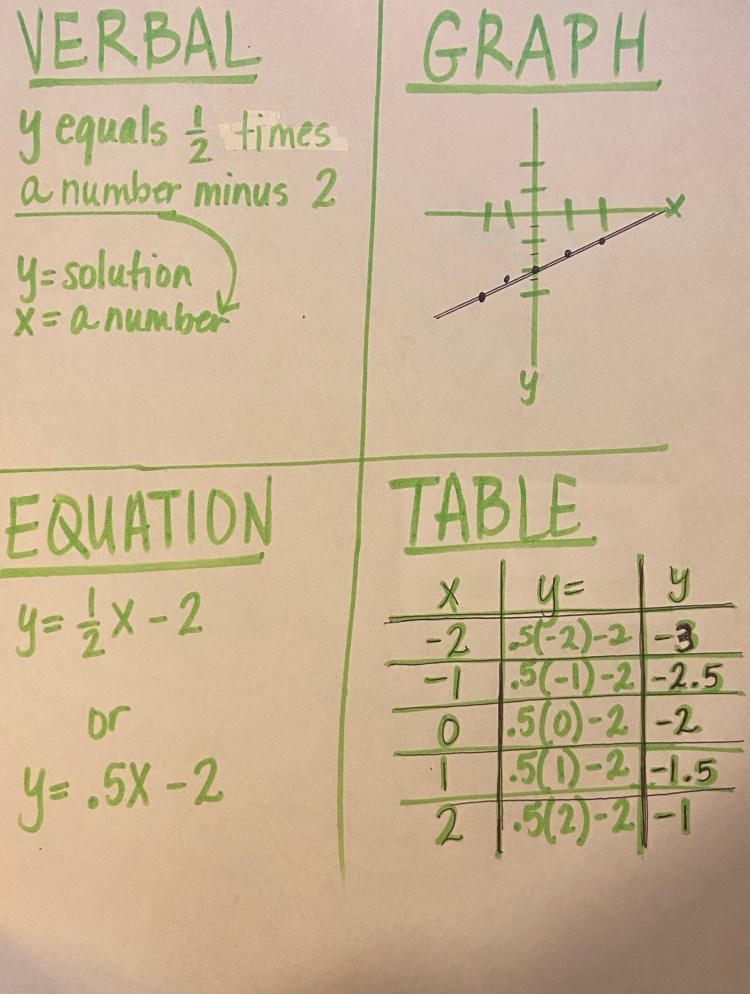 VERBAL
y equals 1/2 times
a number minus 2
y=solution
x= a number
GRAPH
x
y
EQUATION
y= 1/2 x - 2
or
y= .5x - 2
TABLE
x y= y
-2 .5(-2)-2 -3
-1 .5(-1)-2 -2.5
0 .5(0)-2 -2
1 .5(1)-2 -1.5
2 .5(2)-2 -1